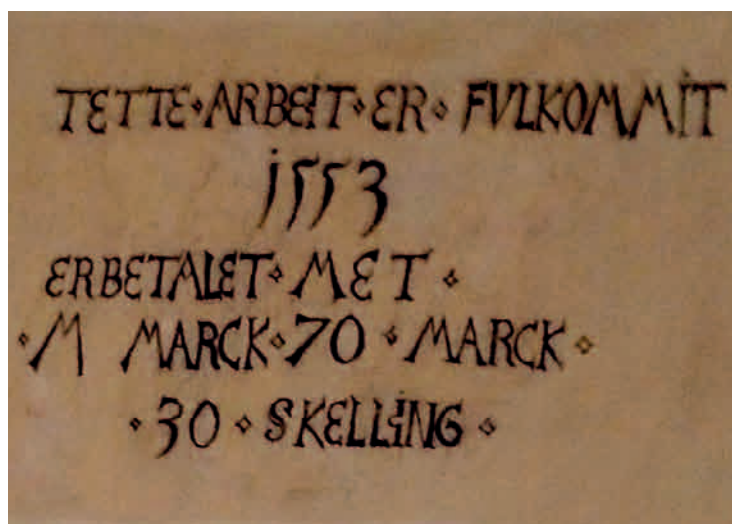 TETTE⋄ARBEIT⋄ER⋄ FVLKOMMIT
1553
ERBETALET⋄ MET ⋄
⋄M MARCK⋄70 ⋄MARCK ⋄
⋄30 ⋄ SKELLING ⋄